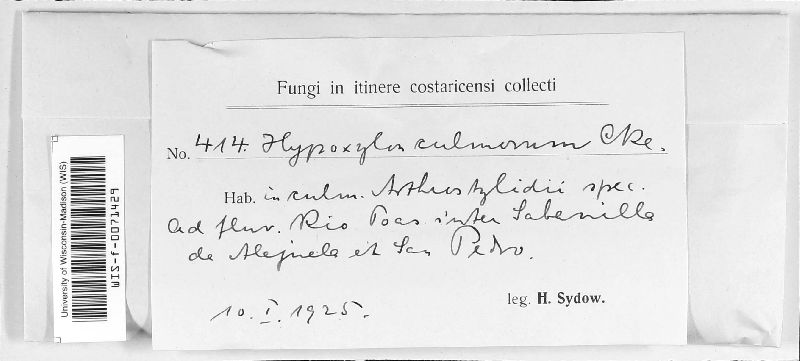 Fungi in itinere costaricensi collecti
No. 414. Hypoxylon culmorum Cke.
Hab. in culm. Arthrostylidii spec.
ad fluv. Rio Poas inter Sabanilla
de Alajuela et San Pedro.
10. I. 1925.
leg. H. Sydow.
University of Wisconsin-Madison (WIS)
WIS-f-0071429